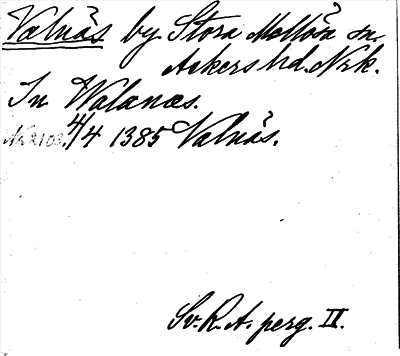 Valnäs by Stora Mellösa sn.
Askers hd. Nrk.
In Walanæs.
Nr 2103. 4/4 1385 Valnäs.
Sv. R. A. perg. II.